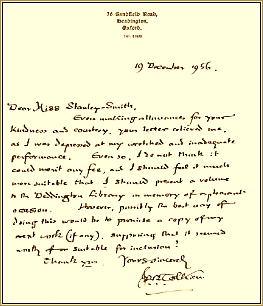 76 Sandfield Road,
Headington,
Oxford.
19 December 1956.
Dear Miss Stanley-Smith,
Even making allowances for your
kindness and courtesy, your letter relieved me,
as I was depressed at my wretched and inadequate
performance. Even so, I do not think it
could merit any fee, and I should feel it much
more suitable that I should present a volume
to the Deddington Library in memory of a pleasant
occasion. However, possibly the best way of
doing this would be to promise a copy of my
next work (if any), supposing that it seemed
worthy of or suitable for inclusion!
Thank you. Yours sincerely
JRR Tolkien